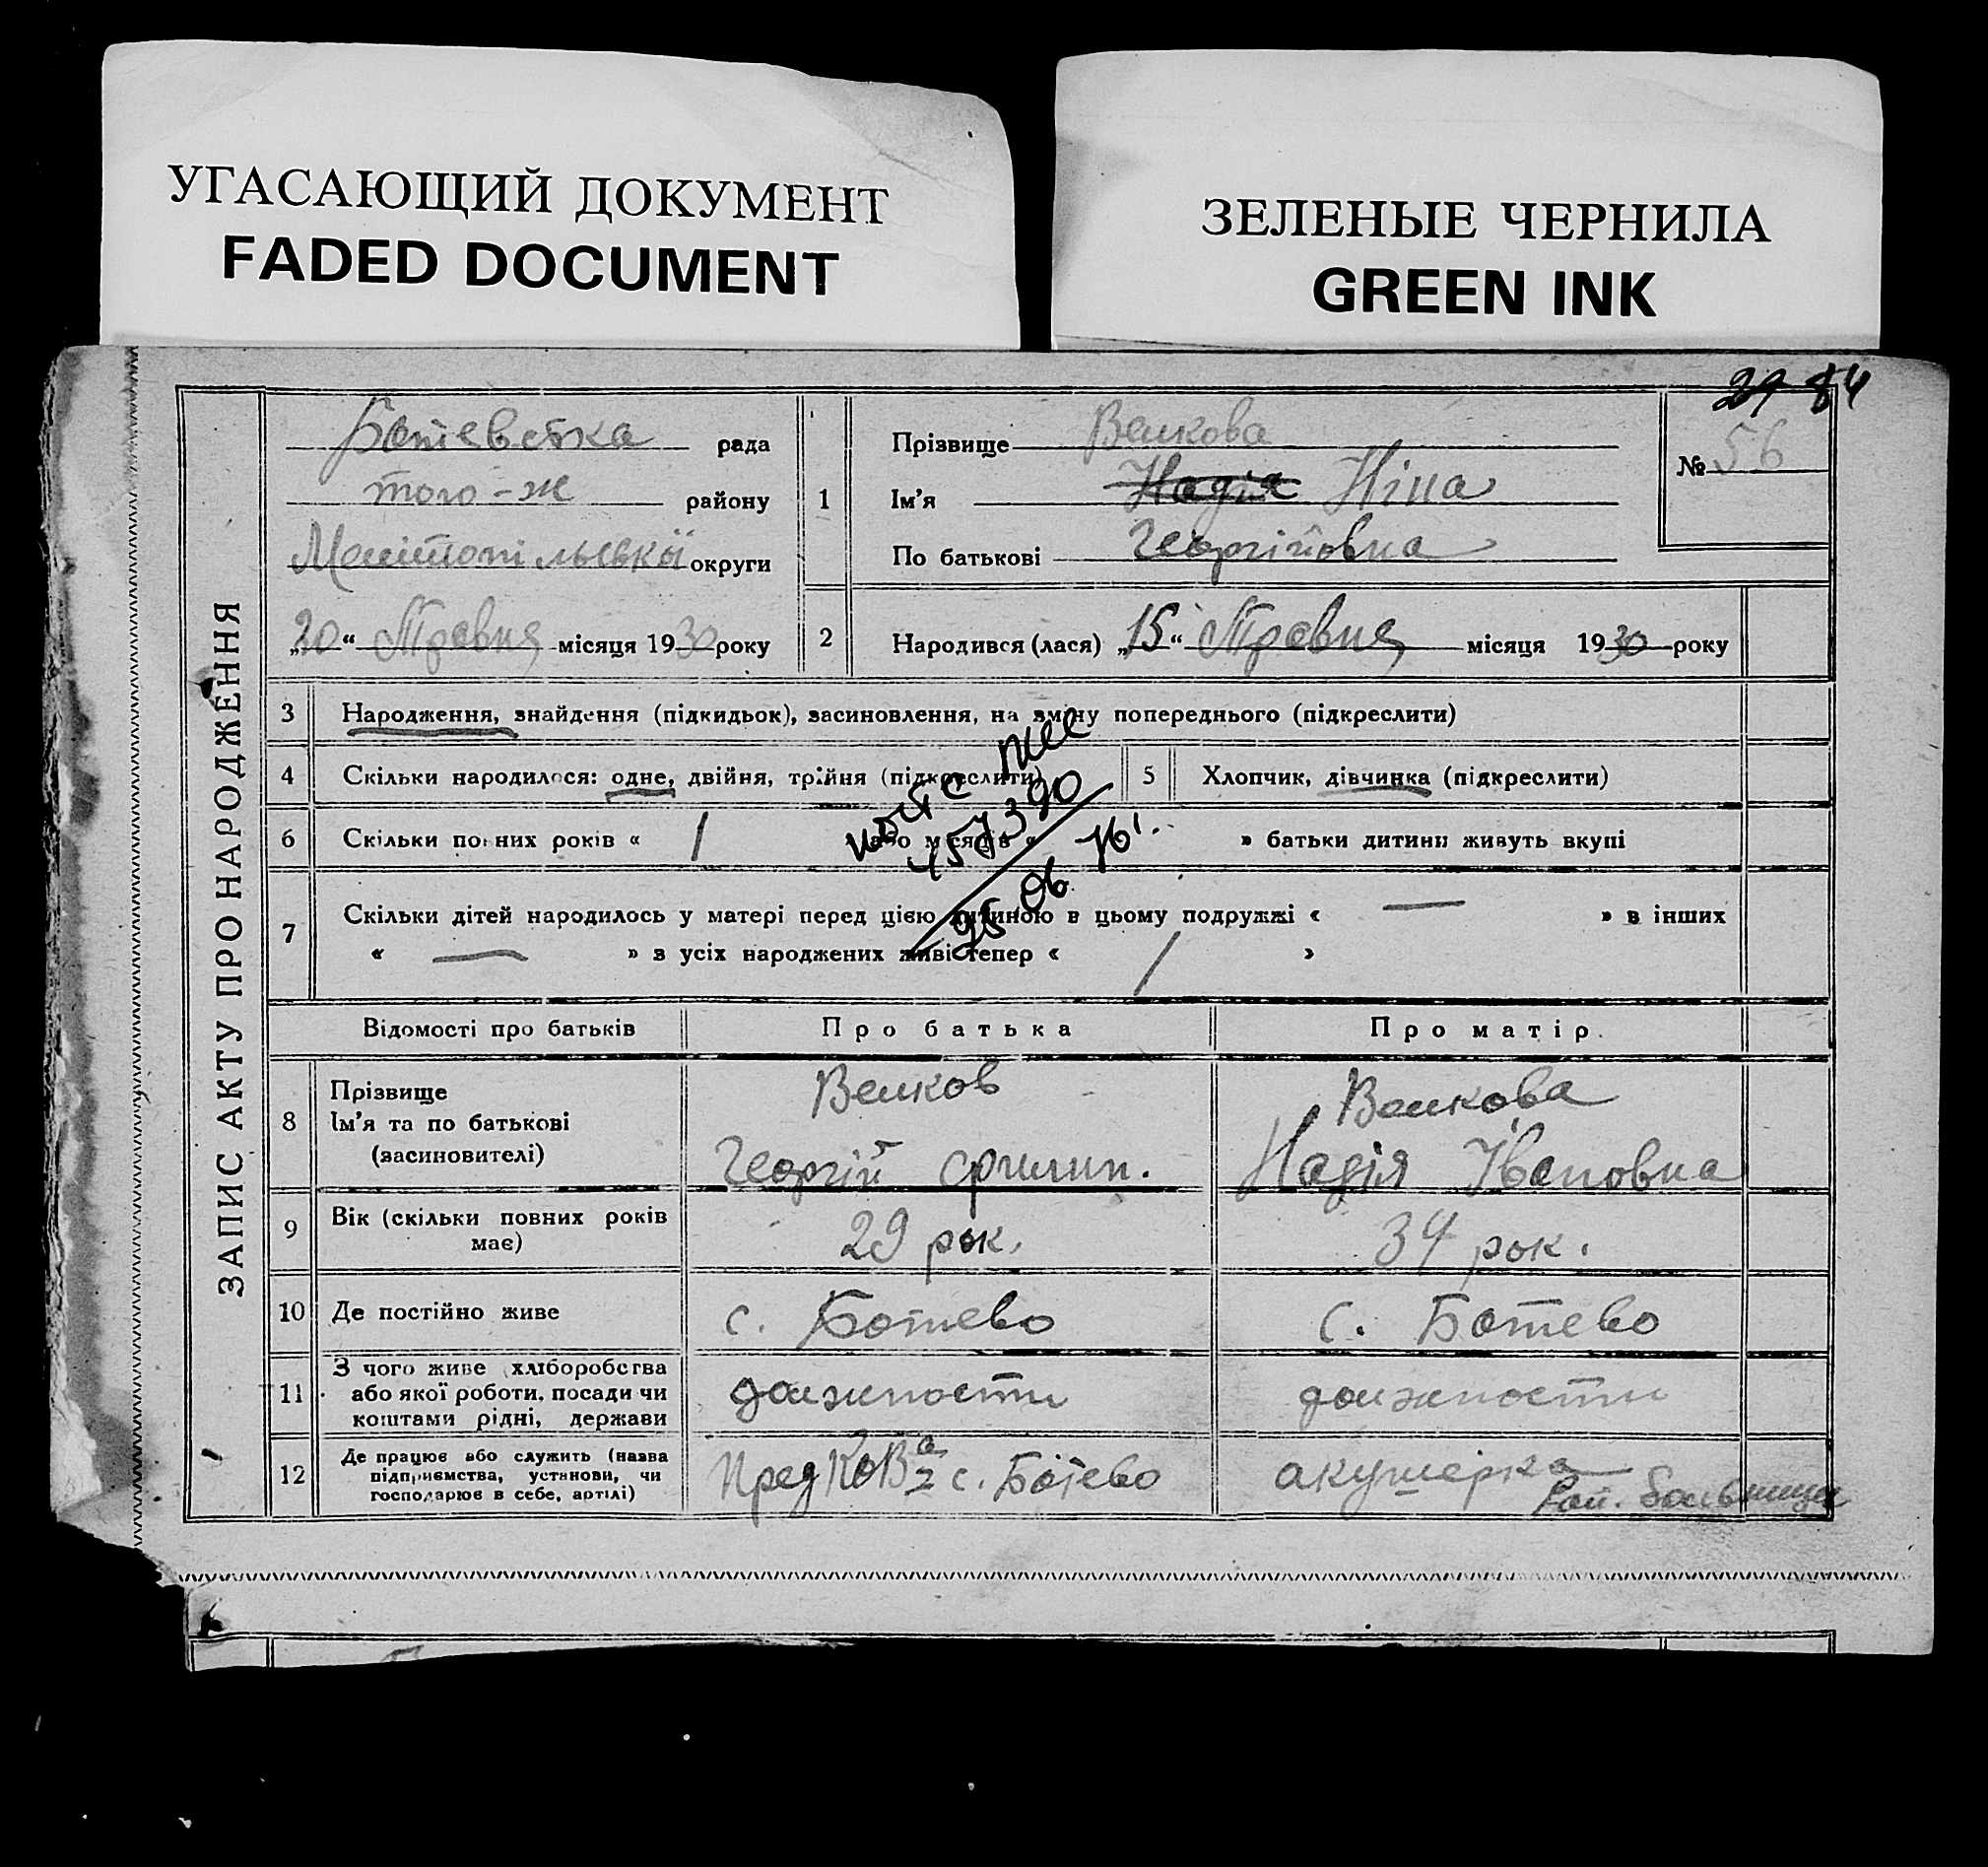 УГАСАЮЩИЙ ДОКУМЕНТ
FADED DOCUMENT
ЗЕЛЕНЫЕ ЧЕРНИЛА
GREEN INK
29 84
ЗАПИС АКТУ ПРО НАРОДЖЕННЯ
Ботевська рада
того-ж району
Мелітопільської округи
„20“ Травня місяця 1930 року
1
Прізвище Велкова
Ім’я Надія Ніна
По батькові Георгійовна
№ 56
2
Народився (лася) „15“ Травня місяця 1930 року
3 Народження, знайдення (підкидьок), засиновлення, на зміну попереднього (підкреслити)
4 Скільки народилося: одне, двійня, трійня (підкреслити)
5 Хлопчик, дівчинка (підкреслити)
6 Скільки повних років « 1 або місяців « » батьки дитини живуть вкупі
457390
06
7 Скільки дітей народилось у матері перед цією дитиною в цьому подружжі « — » в інших
« — » з усіх народжених живі тепер « 1 »
Відомості про батьків
Про батька
Про матір.
8 Прізвище
Ім’я та по батькові
(засиновителі)
Велков
Георгій Филип.
Велкова
Надія Івановна
9 Вік (скільки повних років
має)
29 рок.
34 рок.
10 Де постійно живе
с. Ботево
с. Ботево
11 З чого живе хліборобства
або якої роботи, посади чи
коштами рідні, держави
должности
должности
12 Де працює або служить (назва
підприємства, установи, чи
господарює в себе, артілі)
Пред КОВа с. Ботево
акушерка
Рай. больницы